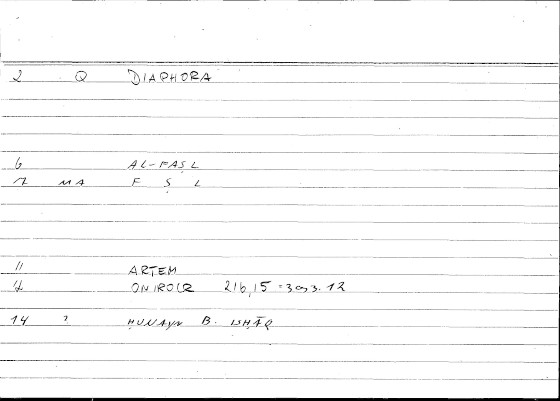 2 Q DIAPHORA
6 AL-FAṢL
7 MA F Ṣ L
11 ARTEM
12 ONIROCR 216,15 =
14 ? ḤUNAYN B. ISḤĀQ